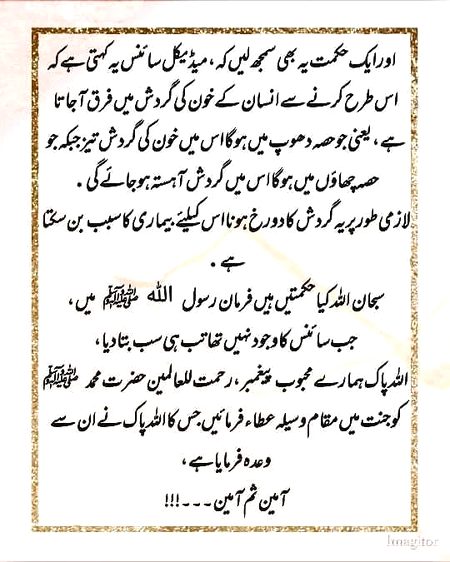 اور ایک حکمت یہ بھی سمجھ لیں کہ، میڈیکل سائنس یہ کہتی ہے کہ
اس طرح کرنے سے انسان کے خون کی گردش میں فرق آجاتا
ہے، یعنی جو حصہ دھوپ میں ہوگا اس میں خون کی گردش تیز جبکہ جو
حصہ چھاؤں میں ہوگا اس میں گردش آہستہ ہو جائے گی .
لازمی طور پر یہ گردش کا دو رخ ہونا اس کیلئے بیماری کا سبب بن سکتا
ہے .
سبحان اللہ کیا حکمتیں ہیں فرمان رسول اللہ ﷺ میں،
جب سائنس کا وجود نہیں تھا تب ہی سب بتا دیا،
اللہ پاک ہمارے محبوب پیغمبر، رحمت للعالمین حضرت محمد ﷺ
کو جنت میں مقام وسیلہ عطاء فرمائیں جس کا اللہ پاک نے ان سے
وعدہ فرمایا ہے،
آمین ثم آمین ---!!!
Imagitor